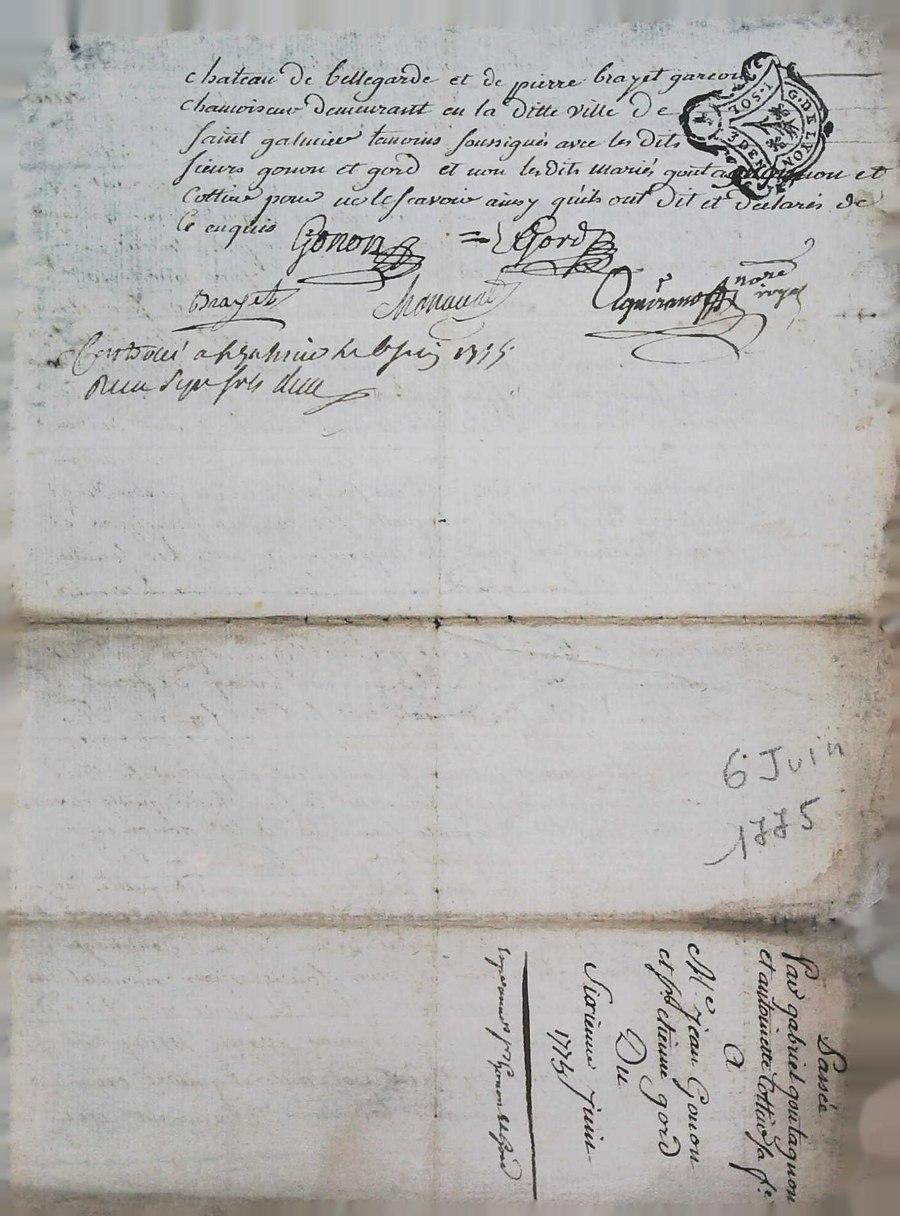 chateau de bellegarde et de pierre brayet garcon
chamoiseur demeurant en la ditte ville de
saint galmier temoins soussignés avec les dits
sieurs gonon et gord et non les dits mariés goutagnon et
Cottine pour ne le scavoir ainsy quils ont dit et declarés de
Ce enquis
G. DE LYON
1. SOL
3. DEN
Gonon = Gord
Brayet
Aguiraud nore royal
Controlé a st galmier le juin 1775
Recu sols
6 Juin
1775
Passée
Par gabriel goutagnon
et antoinette Cottine sa fe
A
Me jean Gonon
et sr etienne gord
Du
Sixieme juin
1775
pr Gonon et Gord